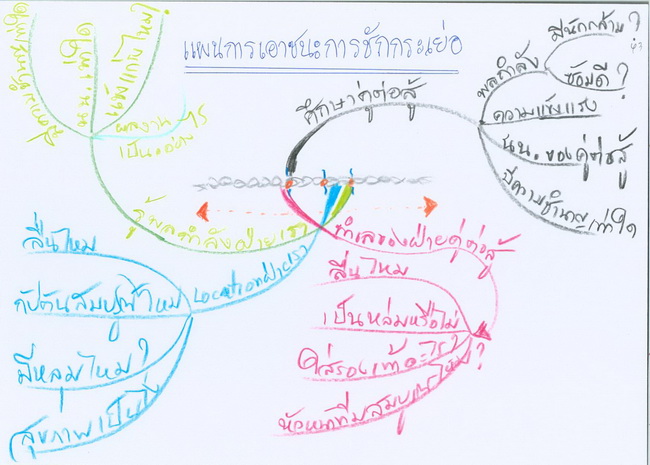 แผนการเอาชนะการชักกระเย่อ
ศึกษาคู่ต่อสู้
พลกำลัง
มีนักกล้าม?
ซ้อมดี?
ความแข็งแรง
นน. ของคู่ต่อสู้
มีความชำนาญเท่าใด
ทำเลของฝ่ายคู่ต่อสู้
ลื่นไหม
เป็นหล่มหรือไม่
ใส่รองเท้าอะไร?
หัวหน้าทีมสมบูรณ์ไหม?
Locationฝ่ายเรา
ลื่นไหม
กัปตันสมบูรณ์ไหม
มีหลุมไหม?
สุขภาพเป็นไง
รู้พลกำลังฝ่ายเรา
ผลงาน
เป็นอย่างไร